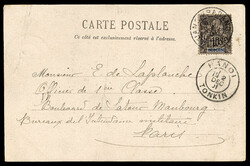 CARTE POSTALE
Ce côté est exclusivement réservé à l'adresse.
HANOI
TONKIN
Monsieur E de Laplanche
Officier de 1re Classe
Boulevard de Latour Maubourg
Bureaux de l'Intendance militaire
Paris